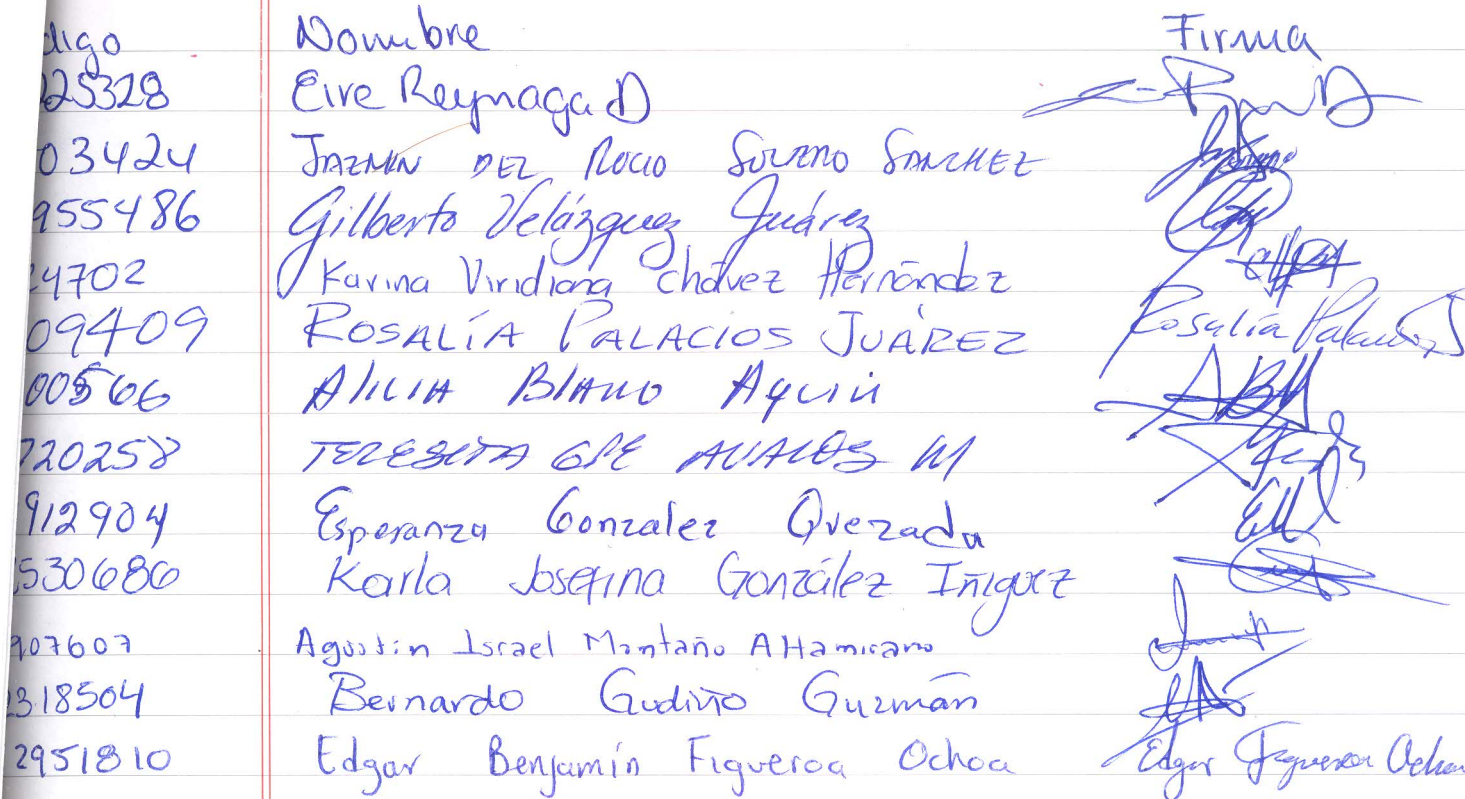 digo Nombre Firma
225328 Eire Reynaga D
03424 JAZMIN DEL ROCIO SOLTERO SANCHEZ
955486 Gilberto Velázquez Juárez
24702 Karina Viridiana Chávez Hernández
09409 ROSALÍA PALACIOS JUÁREZ Rosalía Palacios J
00566 ALICIA BLANCO
720258 TERESITA GPE AVALOS M
912904 Esperanza Gonzalez Quezada
530686 Karla Josefina González Iñiguez
907607 Agustin Israel Montaño Altamirano
2318504 Bernardo Gudiño Guzmán
2951810 Edgar Benjamín Figueroa Ochoa Edgar Figueroa Ochoa